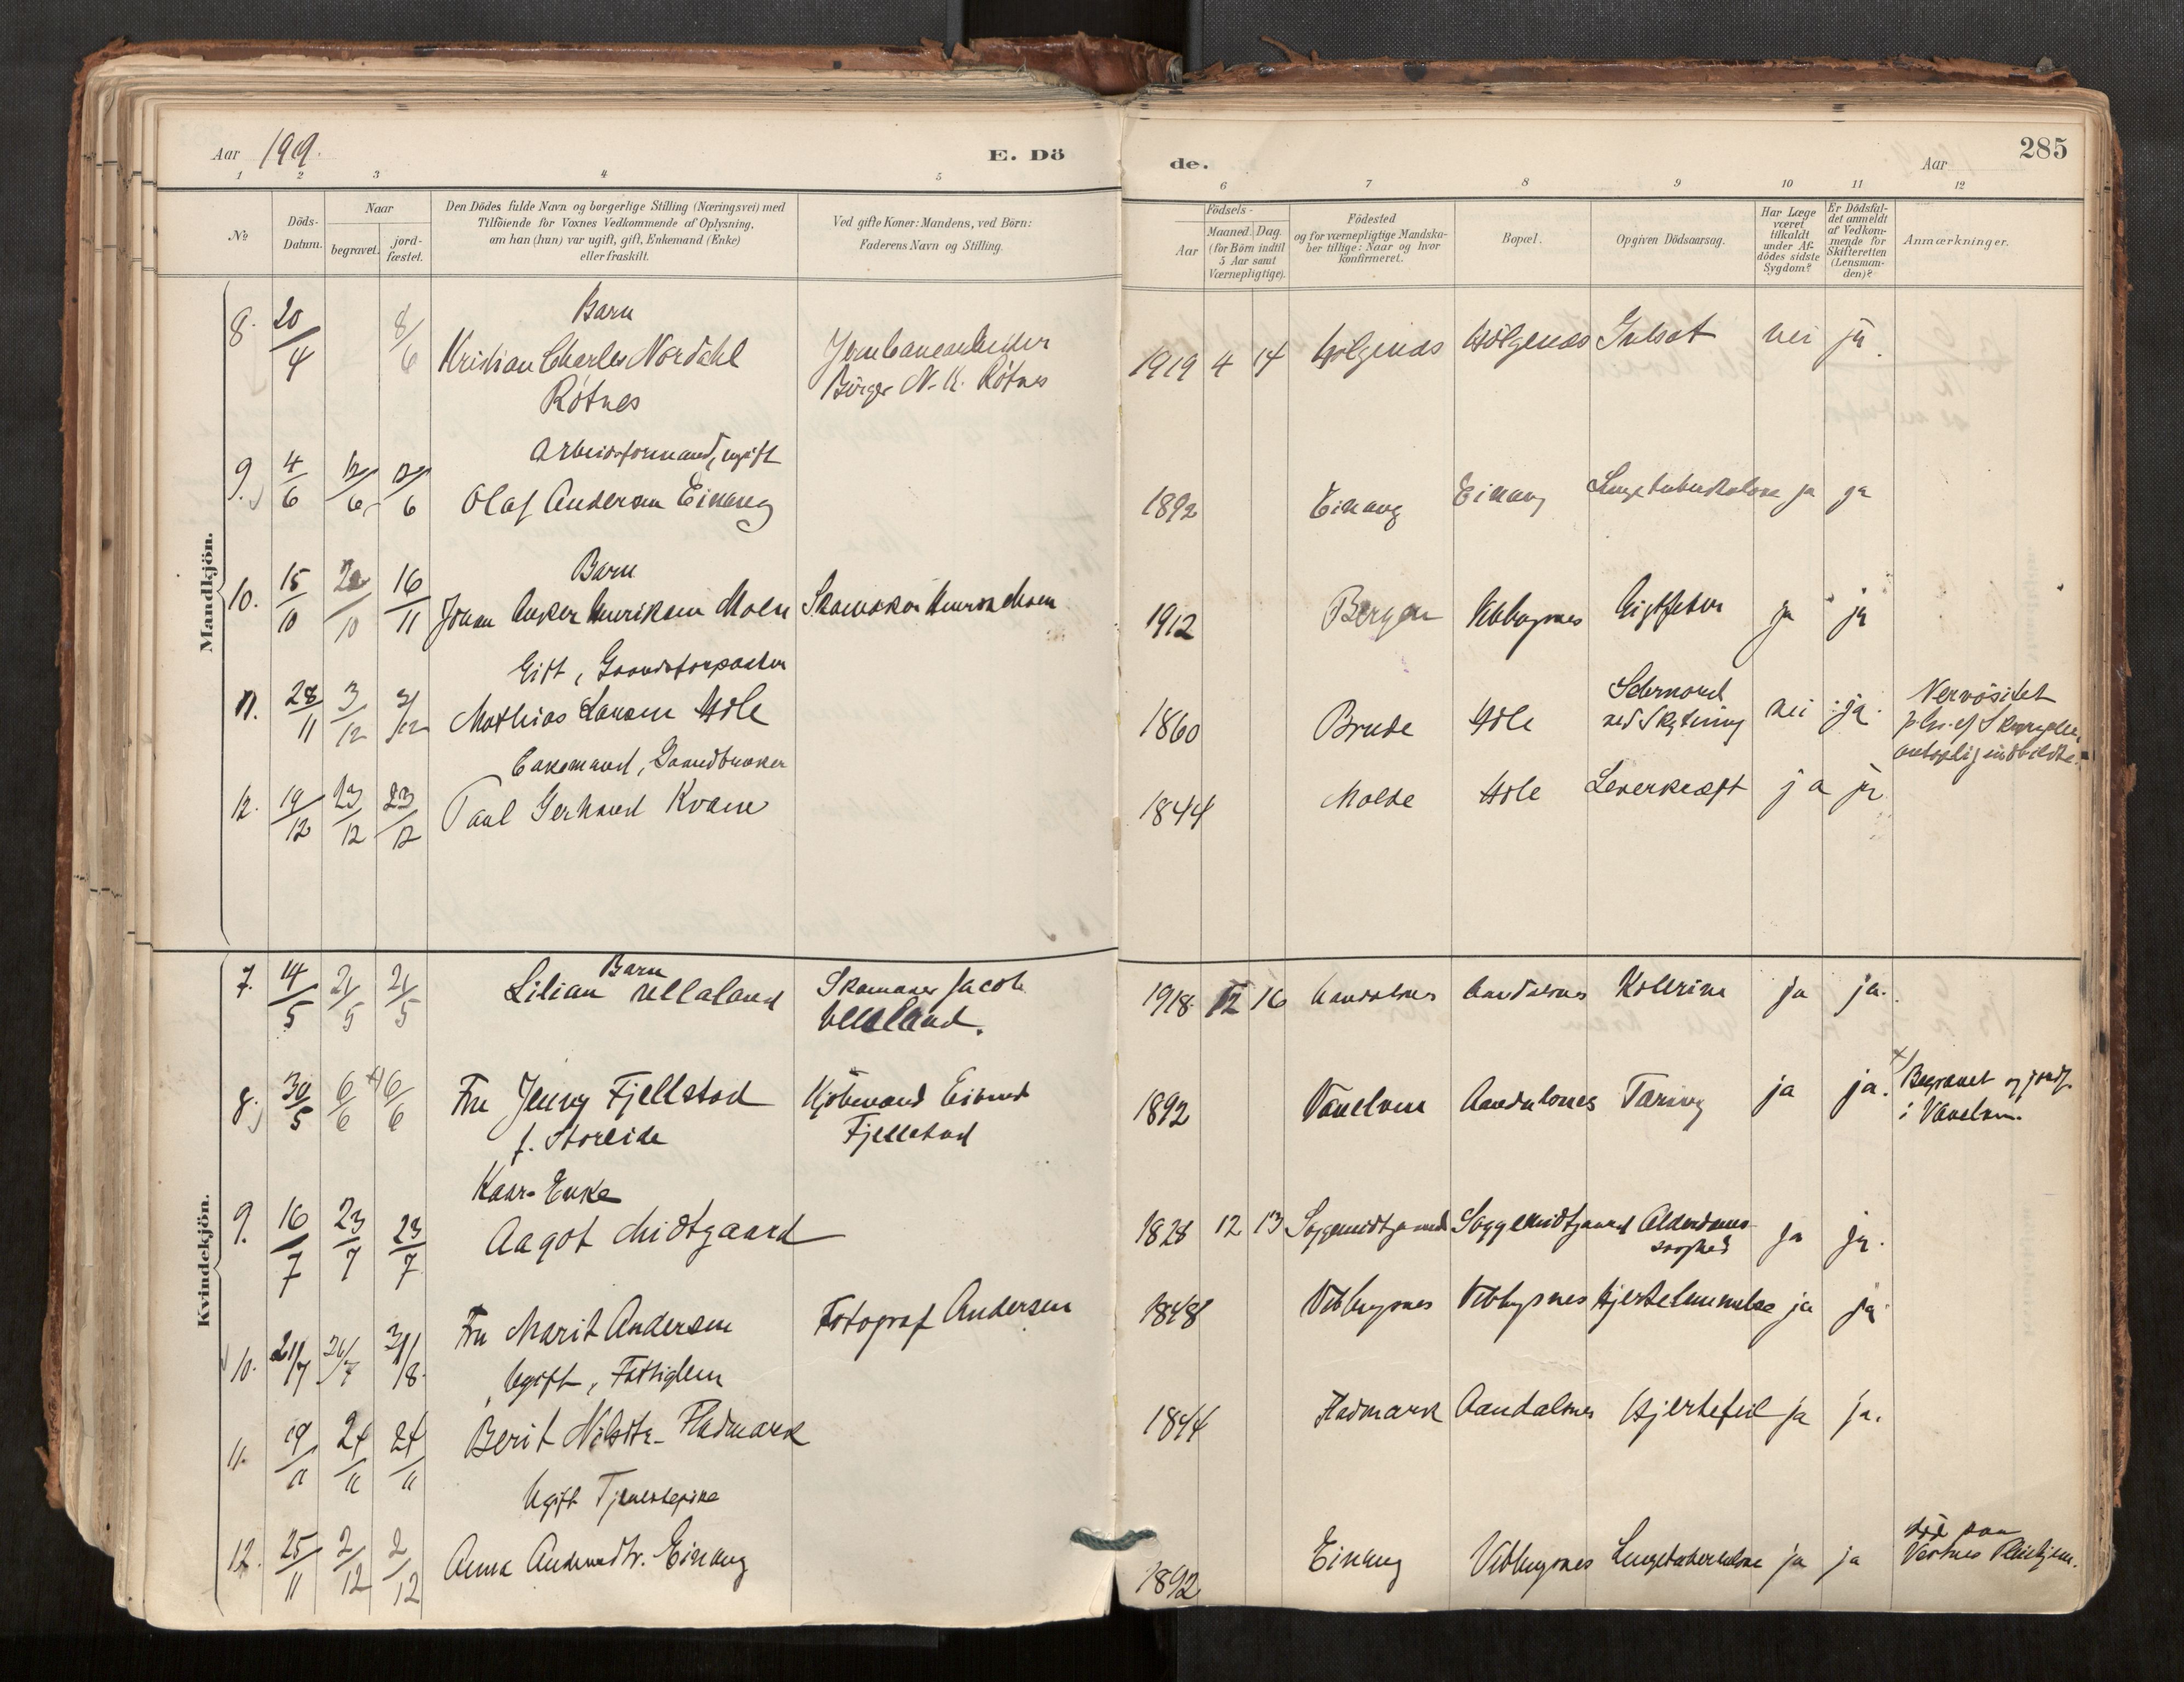 Aar 1919.
E. Dö
de.
Aar
285
1 2 3 4 5 6 7 8 9 10 11 12
№
Döds-
Datum.
Naar
begravet.
jord-
fæstet.
Den Dödes fulde Navn og borgerlige Stilling (Næringsvei) med
Tilföiende for Voxnes Vedkommende af Oplysning,
om han (hun) var ugift, gift, Enkemand (Enke)
eller fraskilt.
Ved gifte Koner: Mandens, ved Börn:
Faderens Navn og Stilling.
Födsels-
Aar
Maaned. Dag.
(for Börn indtil
5 Aar samt
Værnepligtige).
Födested
og for værnepligtige Mandska-
ber tillige: Naar og hvor
konfirmeret.
Bopæl.
Opgiven Dödsaarsag.
Har Læge
været
tilkaldt
under Af-
dödes sidste
Sygdom?
Er Dödsfal-
det anmeldt
af Vedkom-
mende for
Skifteretten
(Lensman-
den)?
Anmærkninger.
Mandkjön.
Barn
8. 20/4 8/6 Kristian Charles Nordahl
Rötnes
Börge N. K. Rötnes
1919 4 14 nei ja.
Arbeidsformand, ugift
9. 4/6 12/6 12/6 Olaf Andersen Einang 1892 Einang Einang Lungetuberkulose ja ja
Barn
10. 15/10 20/10 16/11 Johan Anker Henriksen Moen 1912 Bergen Veblugsnes Gigtfeber ja ja
Gift, Gaardsforpagter
11. 28/11 3/12 3/12 Mathias Larsen Hole 1860 Brude Hole Selvmord
ved Skytning nei ja.
Nervösitet
indbildte.
Enkemand, Gaardbruker
12. 19/12 23/12 23/12 Paul Gerhard Kvam 1844 Molde Hole Leverkræft ja ja
Kvindekjön.
Barn
7. 14/5 21/5 21/5 Lilian Ullaland Skomaker Jacob
Ullaland. 1918 12 16 Aandalsnes Aandalsnes Kolerine ja ja.
8. 30/5 6/6 x) 6/6 Fru Jenny Fjellstad
f. Storeide
Kjöbmand Eivind
Fjellstad 1892 Vanelven Aandalsnes Tæring ja ja.
x) Begravet og jordf.
i Vanelven.
Kaar-Enke
9. 16/7 23/7 23/7 Aagot Midtgaard 1828 12 13 Soggemidtgaard Soggemidtgaard Alderdoms-
svaghed ja ja.
10. 21/7 26/7 31/8 Fru Marit Andersen Fotograf Andersen 1848 Veblugsnes Veblugsnes Hjertelammelse ja ja
Ugift, Fattiglem
11. 19/11 24/11 24/11 Berit Nilsdtr. Fladmark 1844 Fladmark Aandalsnes Hjertefeil ja ja.
Ugift Tjenestepike
12. 25/11 2/12 2/12 Anna Andersdtr. Einang 1892 Einang Veblugsnes Lungetuberkulose ja ja
död paa
Vestnes Pleiehjem.